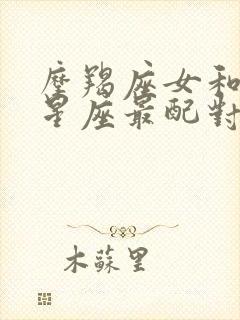 摩羯座女和
星座最配對
木蘇里